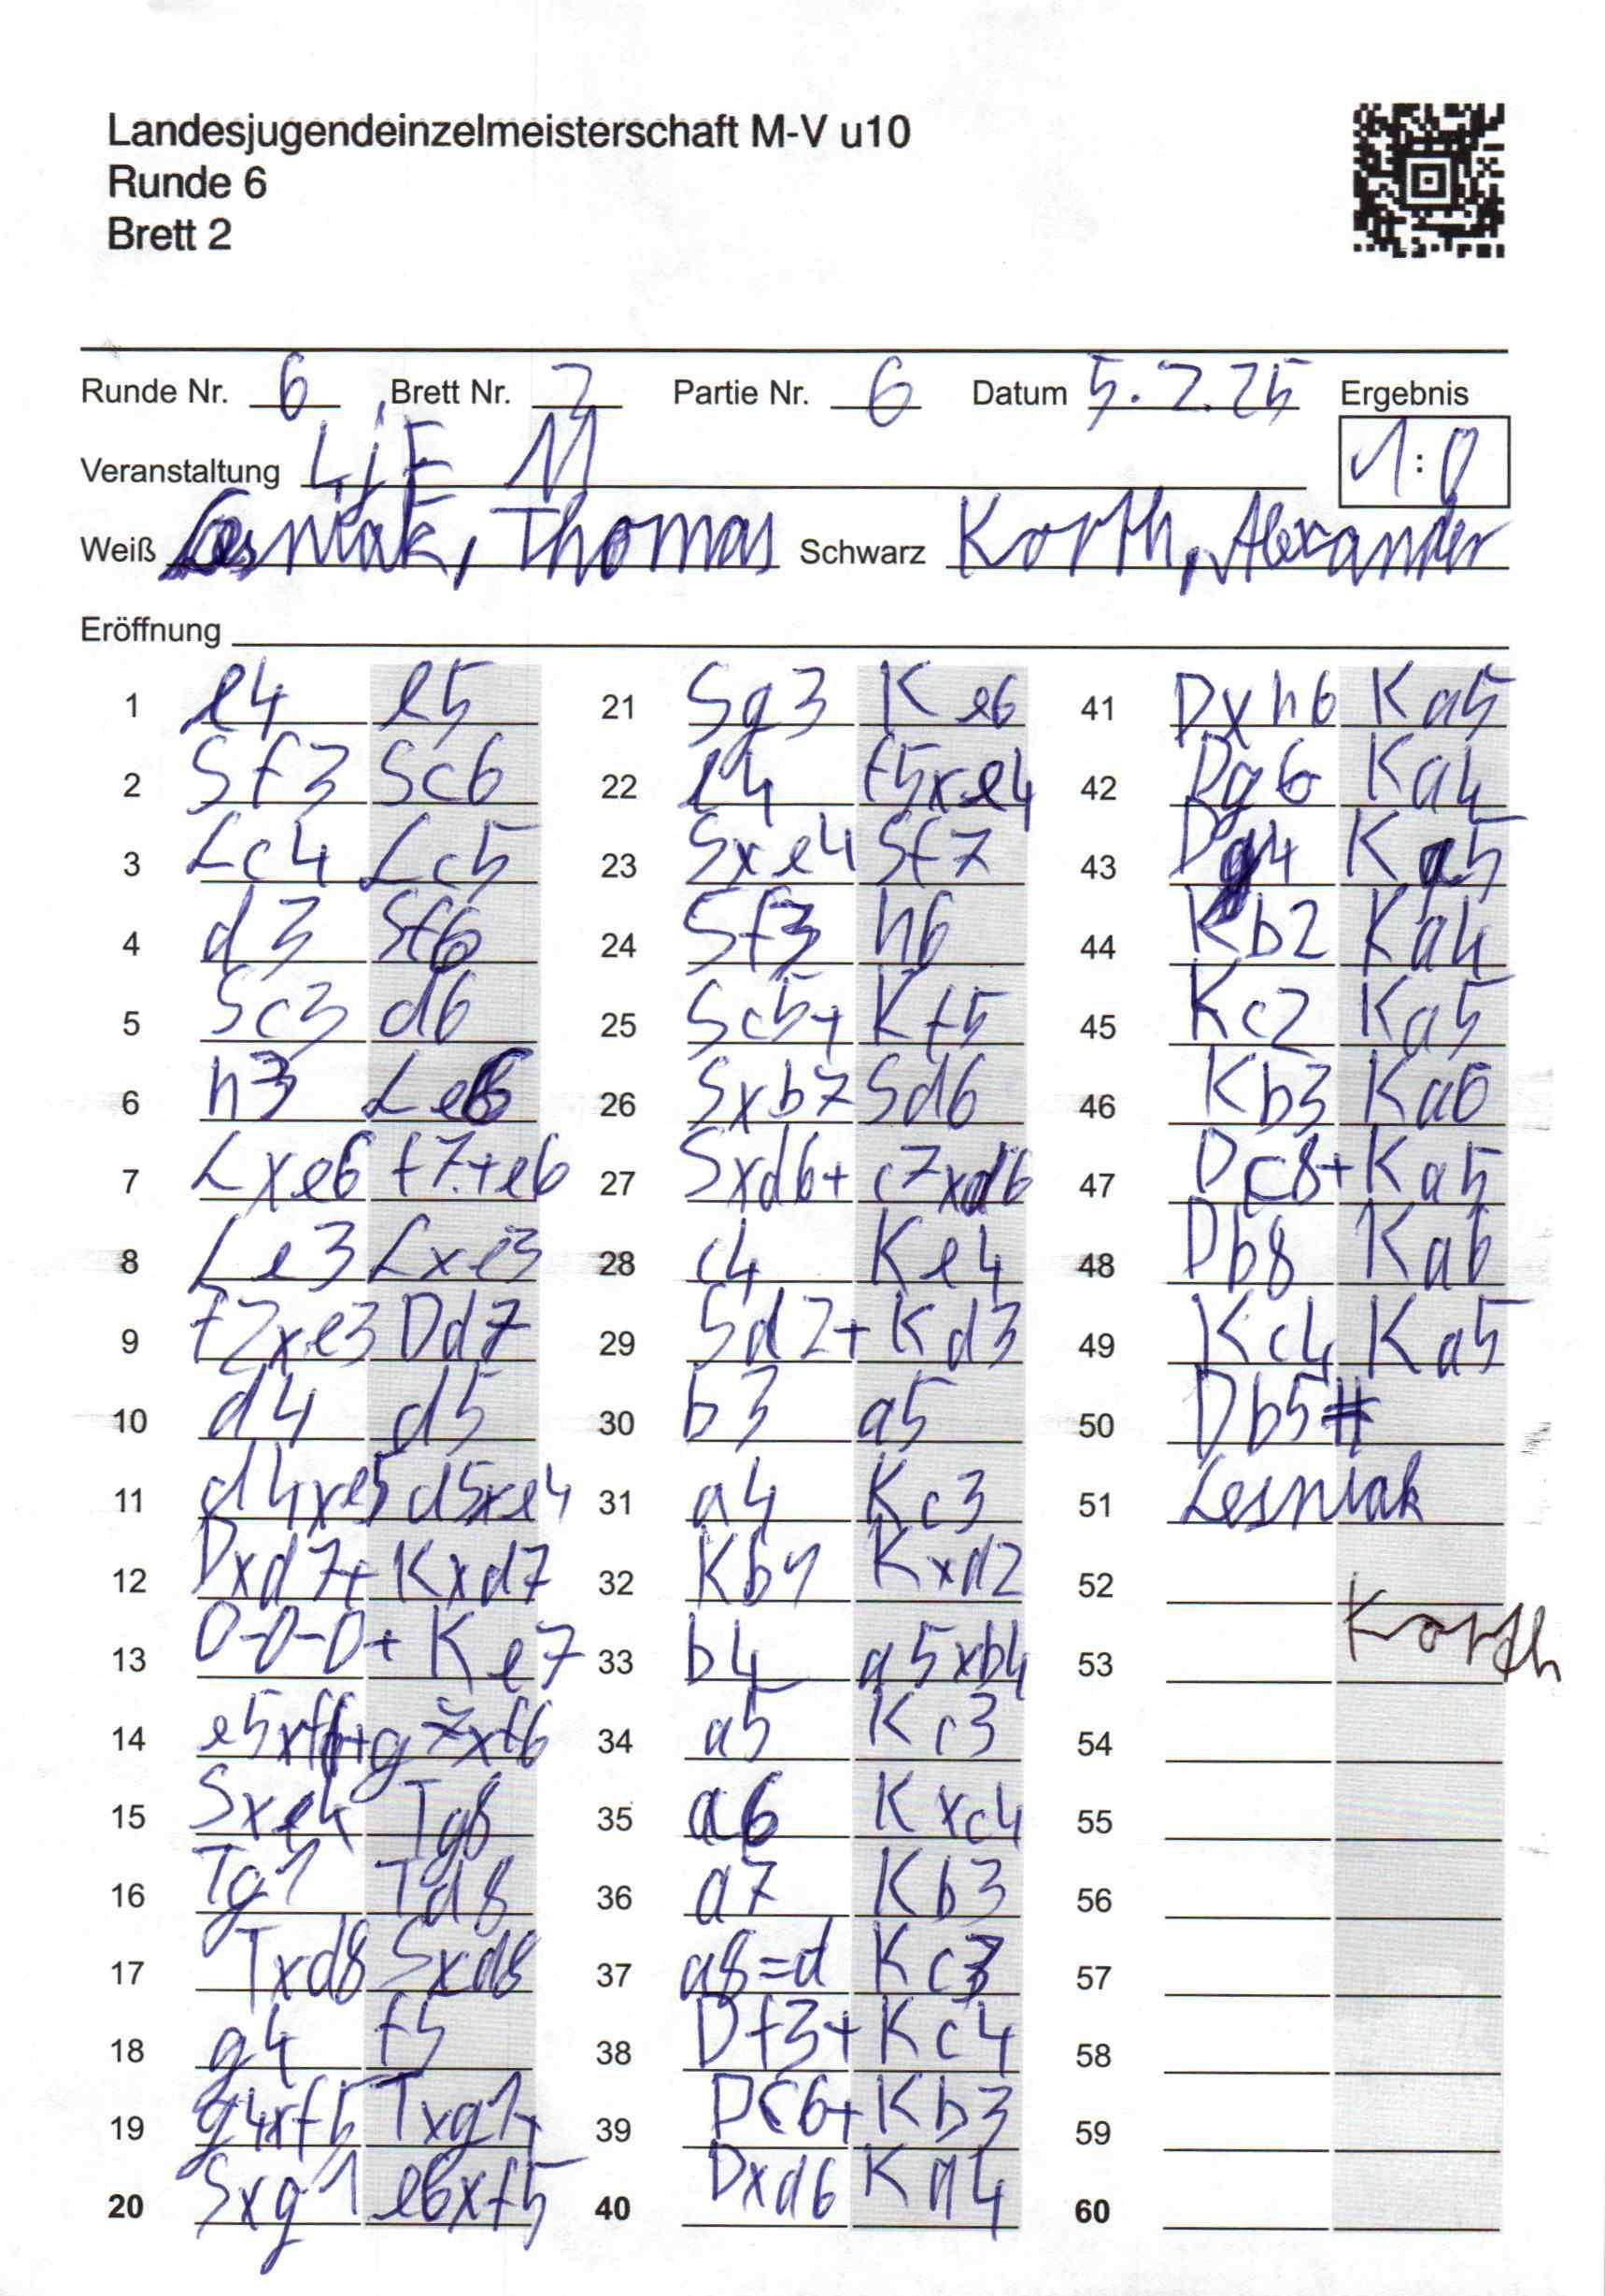 Landesjugendeinzelmeisterschaft M-V u10
Runde 6
Brett 2
Runde Nr. 6 Brett Nr. 2 Partie Nr. 6 Datum 5.2.25 Ergebnis
Veranstaltung LjE 1:0
Weiß Lesniak, Thomas Schwarz Korth, Alexander
Eröffnung
1 e4 e5 21 Sg3 Ke6 41 Dxh6 Ka5
2 Sf3 Sc6 22 e4 f5xe4 42 Dg6 Ka4
3 Lc4 Lc5 23 Sxe4 Sf7 43 Dg4 Ka5
4 d3 Sf6 24 Sf3 h6 44 Kb2 Ka4
5 Sc3 d6 25 Sc5+ Kf5 45 Kc2 Ka5
6 h3 Le6 26 Sxb7 Sd6 46 Kb3 Ka6
7 Lxe6 f7+e6 27 Sxd6+ c7xd6 47 Dc8+ Ka5
8 Le3 Lxe3 28 c4 Ke4 48 Db8 Ka6
9 f2xe3 Dd7 29 Sd2+ Kd3 49 Kc4 Ka5
10 d4 d5 30 b3 a5 50 Db5#
11 d4xe5 d5xe4 31 a4 Kc3 51 Lesniak
12 Dxd7+ Kxd7 32 Kb1 Kxd2 52
13 0-0-0+ Ke7 33 b4 a5xb4 53 Korth
14 e5xf6+ g7xf6 34 a5 Kc3 54
15 Sxe4 Tg8 35 a6 Kxc4 55
16 Tg1 Td8 36 a7 Kb3 56
17 Txd8 Sxd8 37 a8=d Kc3 57
18 g4 f5 38 Df3+ Kc4 58
19 g4xf5 Txg1+ 39 Dc6+ Kb3 59
20 Sxg1 e6xf5 40 Dxd6 Ka4 60